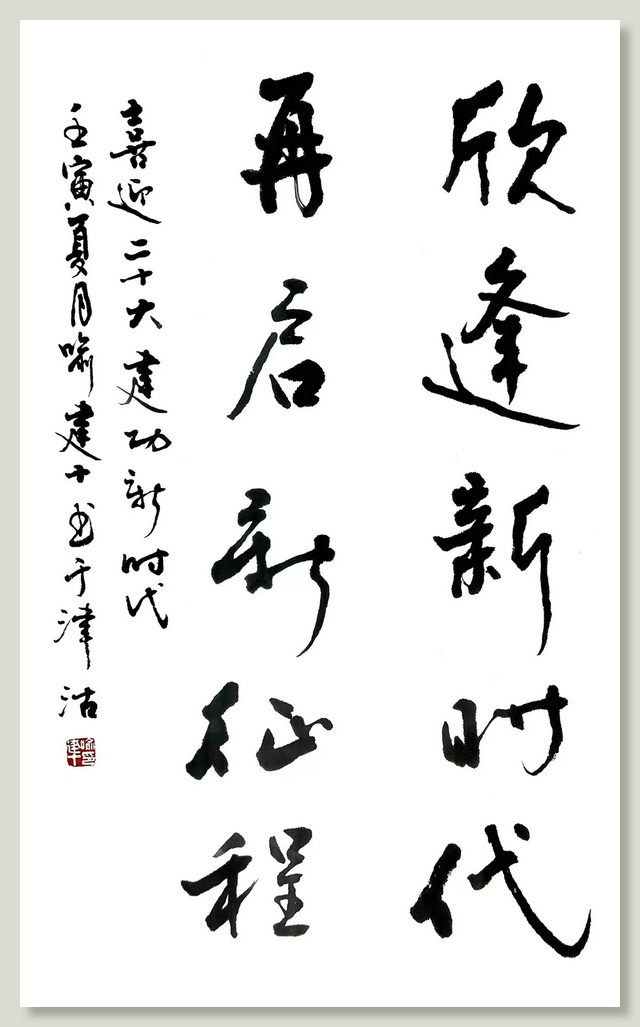 欣逢新时代
再启新征程
喜迎二十大建功新时代
壬寅夏月喻建十书于津沽